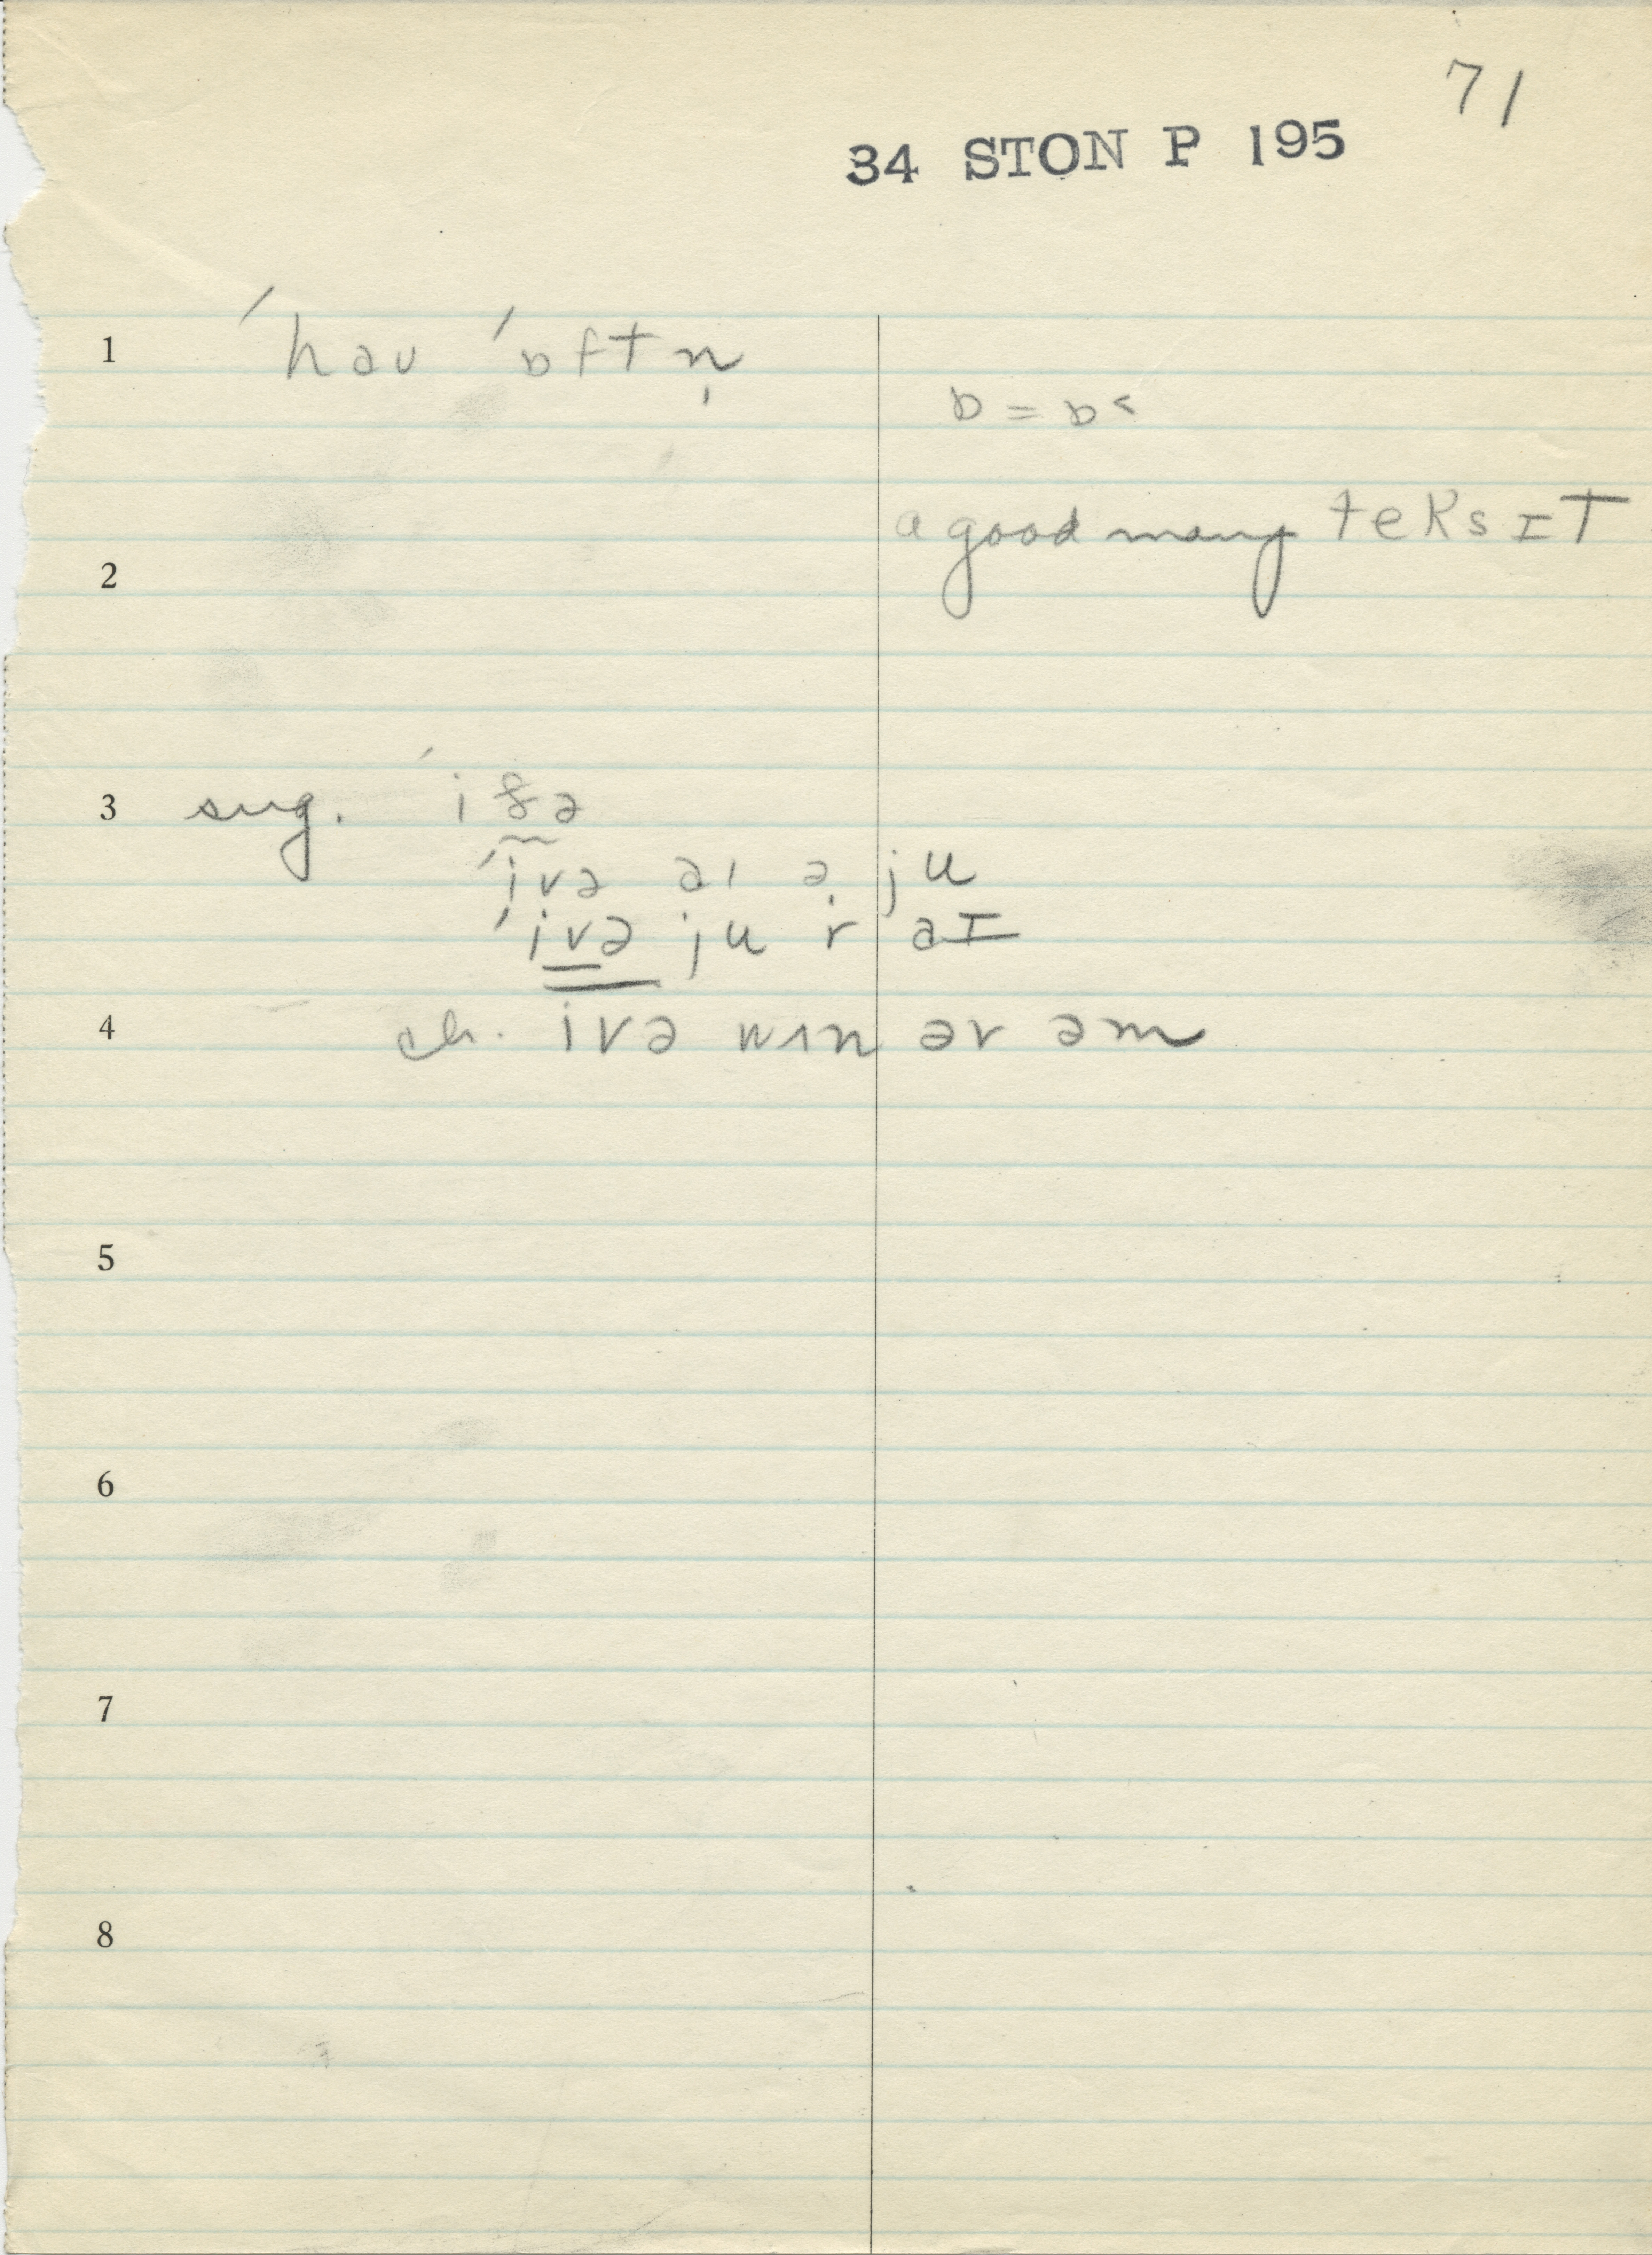 71
34 STON P 195
1 ˈhaʊ ˈɒftn̩
ɒ = ɒ˂
a good many teksɪt
2
3 sug. ˈiðə
ˈivə aɪ ə ju
ˈivə ju r aɪ
4 ch. ivə wʌn əv əm
5
6
7
8